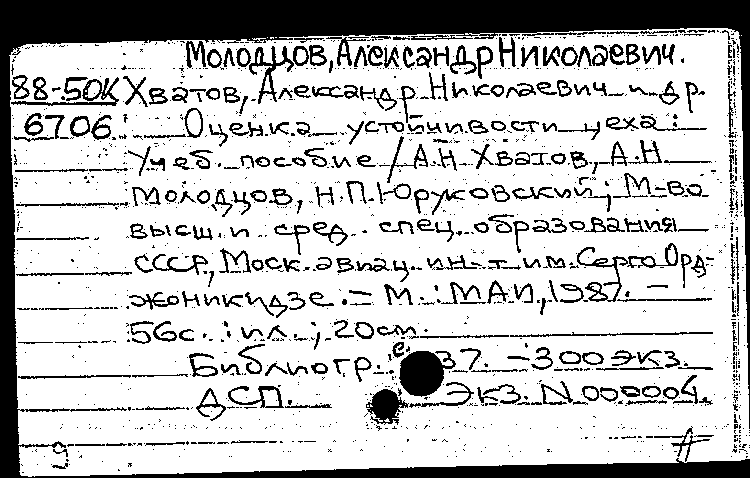 Молодцов, Александр Николаевич.
88-50К Хватов, Александр Николаевич и др.
6706 Оценка устойчивости цеха :
Учеб. пособие / А.Н. Хватов, А.Н.
Молодцов, Н.П. Юруковский ; М-во
высш. и сред. спец. образования
СССР, Моск. авиац. ин-т им. Серго Орд-
жоникидзе. - М. : МАИ, 1987. -
56с. : ил. ; 20см.
Библиогр. : с. 37. - 300 экз.
ДСП. Экз. N 000004.
9